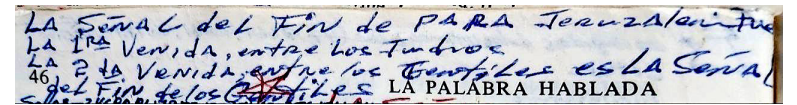 LA SEÑAL del Fin de PARA Jeruzalem Fue
LA 1RA Venida, entre Los Judios
LA 2da Venida, entre los Gentiles es LA Señal
46 del Fin de los Gentiles LA PALABRA HABLADA